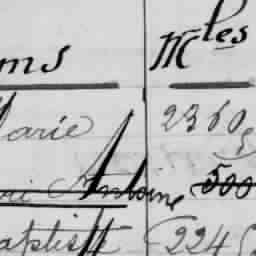 ms Mles
Marie 2360
Antoine 500
aptiste 224